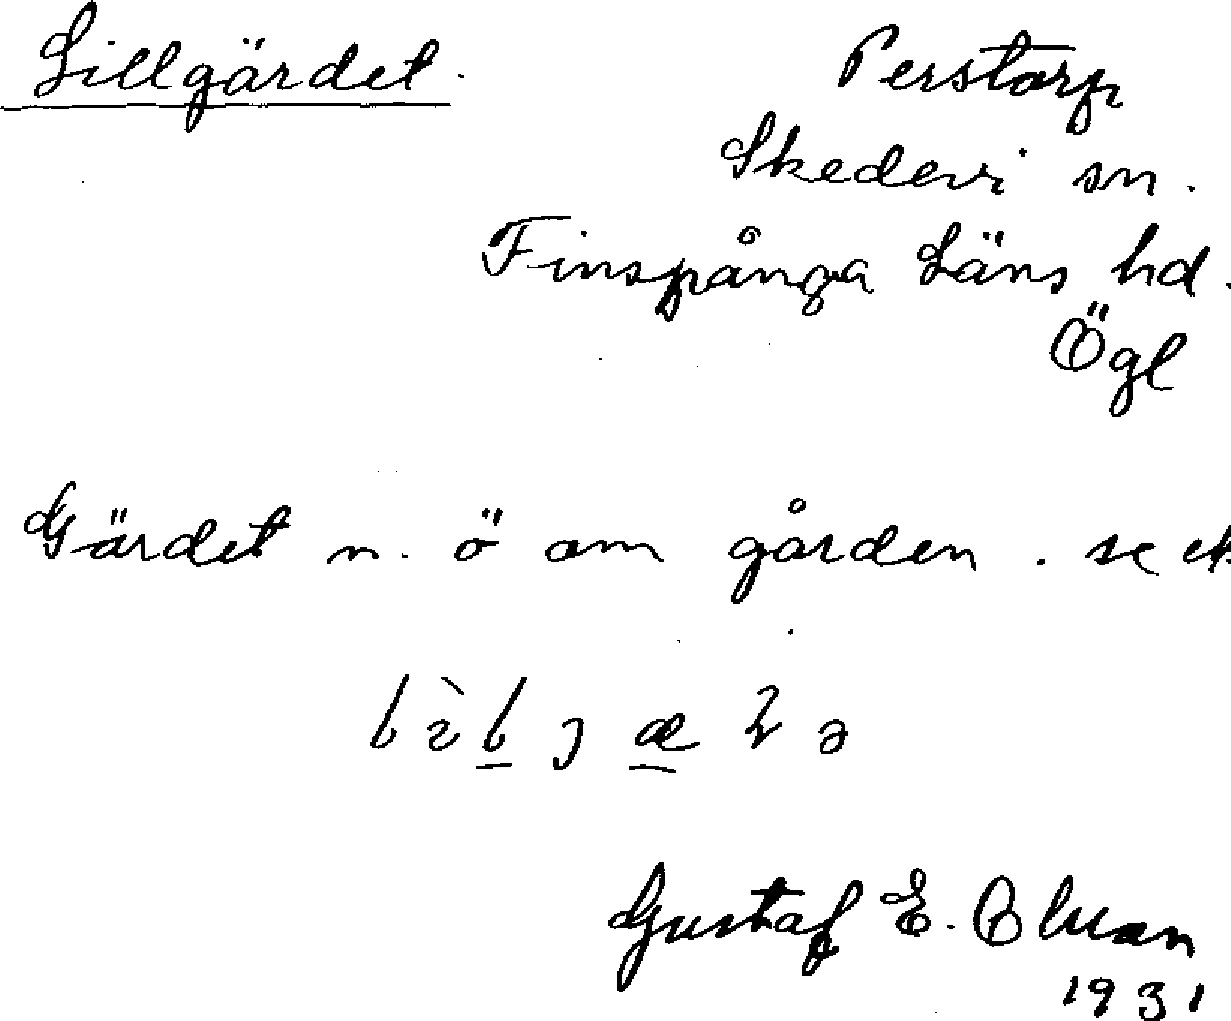 Lillgärdet.
Perstorp
Skedevi sn.
Finspånga Läns hd.
Ögl
Gärdet n. ö om gården. se ek
Gustaf E.
1931